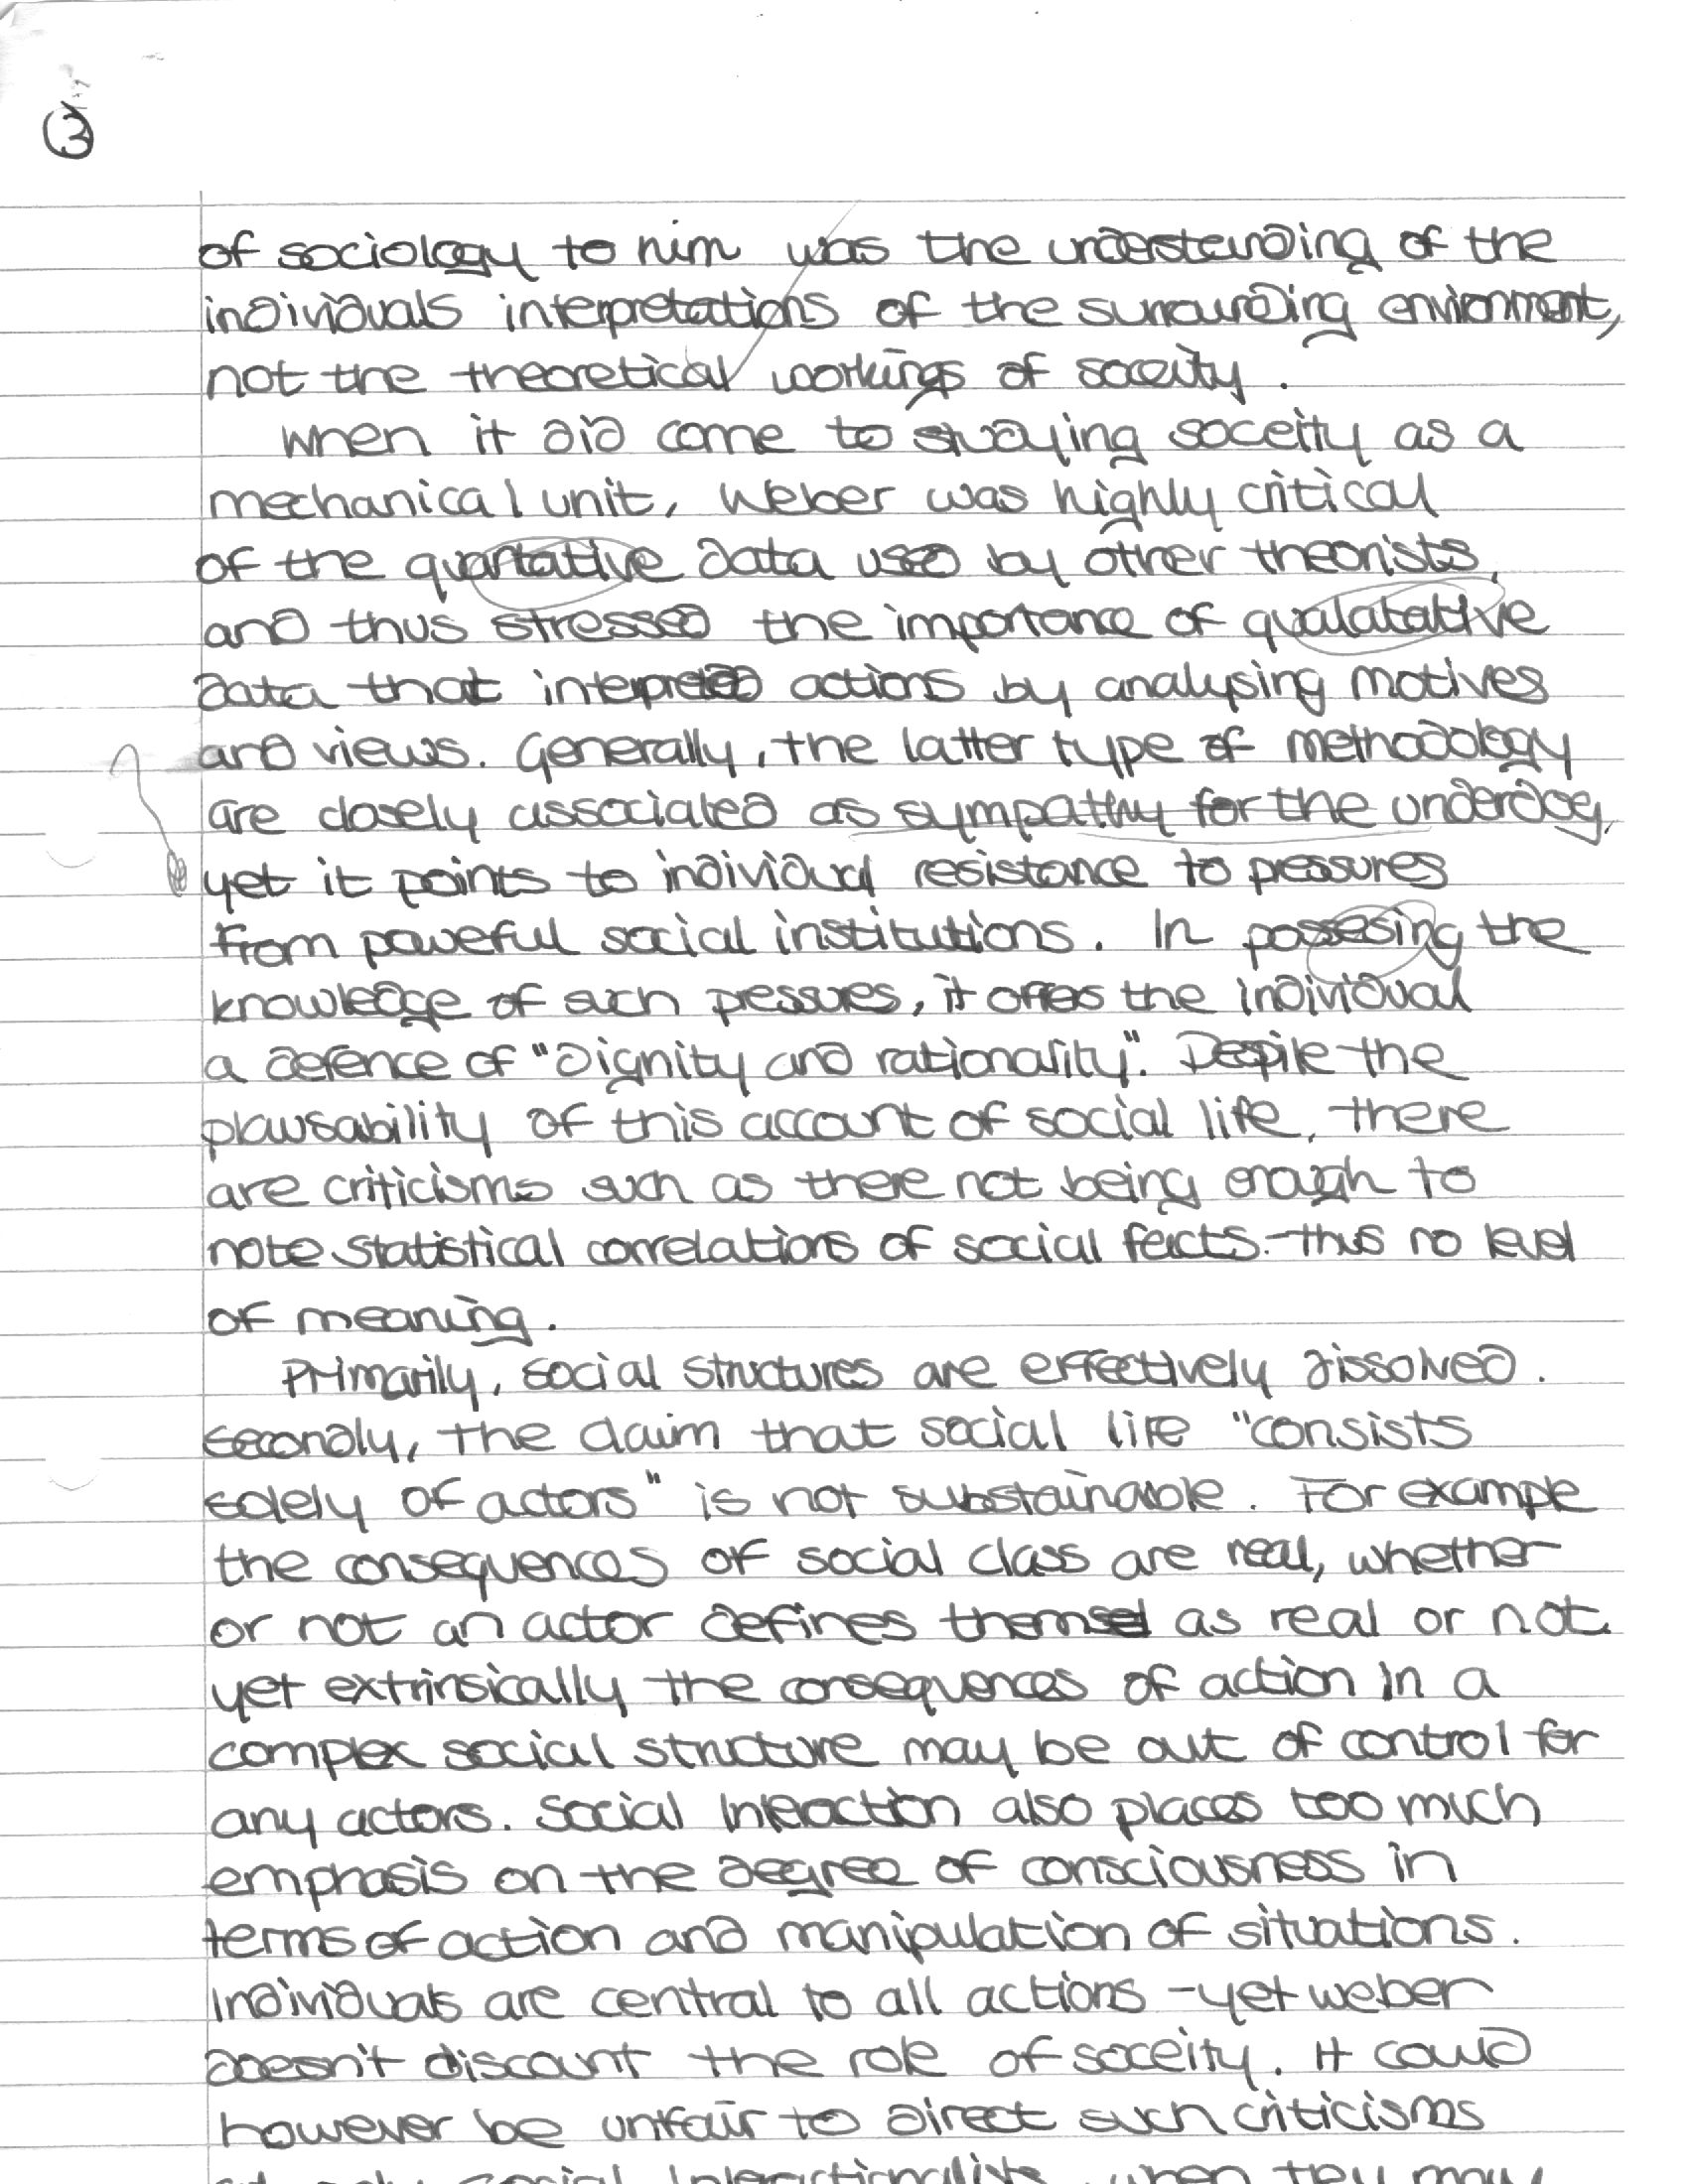 3
of sociology to him was the understanding of the
individuals interpretations of the surrounding environment,
not the theoretical workings of soceity.
When it did come to studying soceity as a
mechanical unit, Weber was highly critical
of the quantative data used by other theorists,
and thus stressed the importance of qualatative
data that interpreted actions by analysing motives
and views. Generally, the latter type of methodology
are closely associated as sympathy for the underdog,
yet it points to individual resistance to pressures
from poweful social institutions. In possesing the
knowledge of such pressures, it offers the individual
a defence of "dignity and rationality". Despite the
plausability of this account of social life, there
are criticisms such as there not being enough to
note statistical correlations of social facts - thus no level
of meaning.
Primarily, social structures are effectively dissolved.
Secondly, the claim that social life "consists
solely of actors" is not substainable. For example
the consequences of social class are real, whether
or not an actor defines them as real or not.
yet extrinsically the consequences of action in a
complex social structure may be out of control for
any actors. Social Interaction also places too much
emphasis on the degree of consciousness in
terms of action and manipulation of situations.
Individuals are central to all actions - yet weber
doesn't discount the role of soceity. It could
however be unfair to direct such criticisms
social Interactionalists, when they may